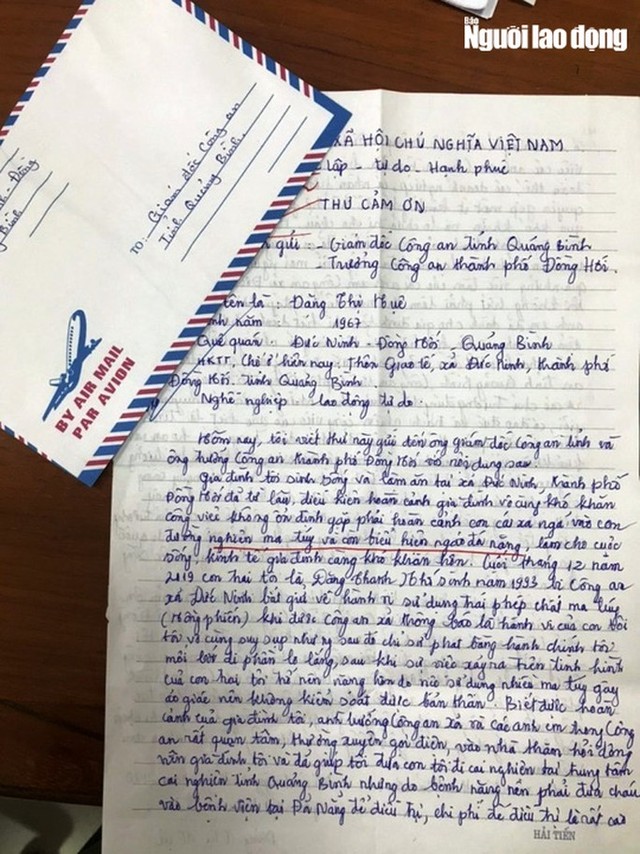 Báo
Người lao động
Giám đốc Công an
TO:
Tỉnh Quảng Bình
BY AIR MAIL
PAR AVION
XÃ HỘI CHỦ NGHĨA VIỆT NAM
lập - tự do - Hạnh phúc
THƯ CẢM ƠN
gửi: - Giám đốc Công an tỉnh Quảng Bình
- Trưởng Công an thành phố Đồng Hới.
tên là: Đặng Thị Huệ
năm 1967
Quê quán: Đức Ninh - Đồng Hới, Quảng Bình
HKTT, Chỗ ở hiện nay: Thôn Giao tế, xã Đức Ninh, thành phố
Đồng Hới, tỉnh Quảng Bình
Nghề nghiệp lao động tự do.
Hôm nay, tôi viết thư này gửi đến ông giám đốc công an tỉnh và
ông trưởng công an thành phố Đồng Hới với nội dung sau:
Gia đình tôi sinh sống và làm ăn tại xã Đức Ninh, thành phố
Đồng Hới đã từ lâu, điều kiện hoàn cảnh gia đình vô cùng khó khăn
công việc không ổn định gặp phải hoàn cảnh con cái xa ngã vào con
đường nghiện ma túy và còn biểu hiện ngáo đá nặng, làm cho cuộc
sống, kinh tế gia đình càng khó khăn hơn. Cuối tháng 12 năm
2019 con trai tôi là, Đặng Thanh sinh năm 1993 bị Công an
xã Đức Ninh bắt giữ về hành vi sử dụng trái phép chất ma túy
(Hồng phiến) khi được công an xã thông báo là hành vi của con tôi
tôi vô cùng suy sụp nhưng sau đó chỉ xử phạt bằng hành chính tôi
mới bớt đi phần lo lắng, sau khi sự việc xảy ra trên tình hình
của con trai tôi trở nên nặng hơn do nó sử dụng nhiều ma túy gây
ảo giác nên không kiểm soát được bản thân. Biết được hoàn
cảnh của gia đình tôi, anh trưởng Công an xã và các anh em trong Công
an rất quan tâm, thường xuyên gọi điện, vào nhà thăm hỏi động
viên gia đình tôi và đã giúp tôi đưa con tôi đi cai nghiện tại trung tâm
cai nghiện tỉnh Quảng Bình nhưng do bệnh nặng nên phải đưa cháu
vào bệnh viện tại Đà Nẵng để điều trị, chi phí để điều trị là rất cao
HẢI TIẾN